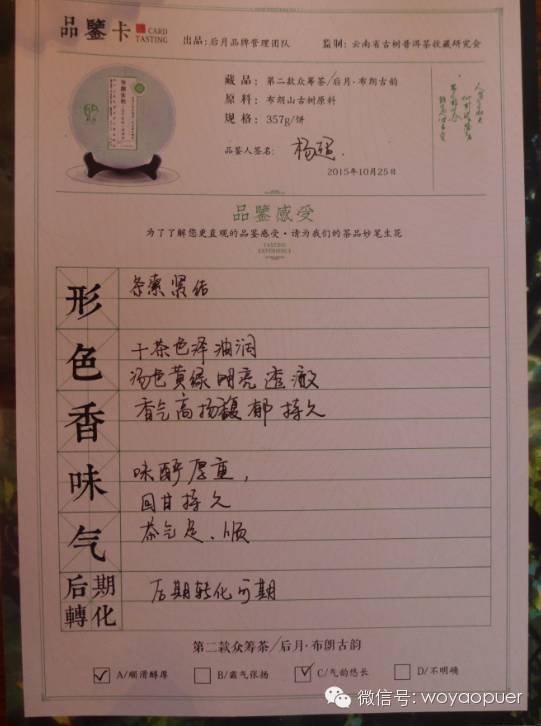 品鑒卡
CARD
TASTING
出品：后月品牌管理团队
监制：云南省古树普洱茶收藏研究会
藏品：第二款众筹茶/后月·布朗古韵
原料：布朗山古树原料
规格：357g/饼
品鉴人签名：杨超
2015年10月25日
品鑒感受
为了了解您更直观的品鉴感受·请为我们的茶品妙笔生花
TASTING
EXPERIENCE
形
条索紧结
色
干茶色泽油润
汤色黄绿明亮透澈
香
香气高扬馥郁持久
味
味酽厚重，
回甘持久
气
茶气足、顺
后期
轉化
后期转化可期
第二款众筹茶/后月·布朗古韵
A/顺滑醇厚
B/霸气张扬
C/气韵悠长
D/不明确
微信号: woyaopuer